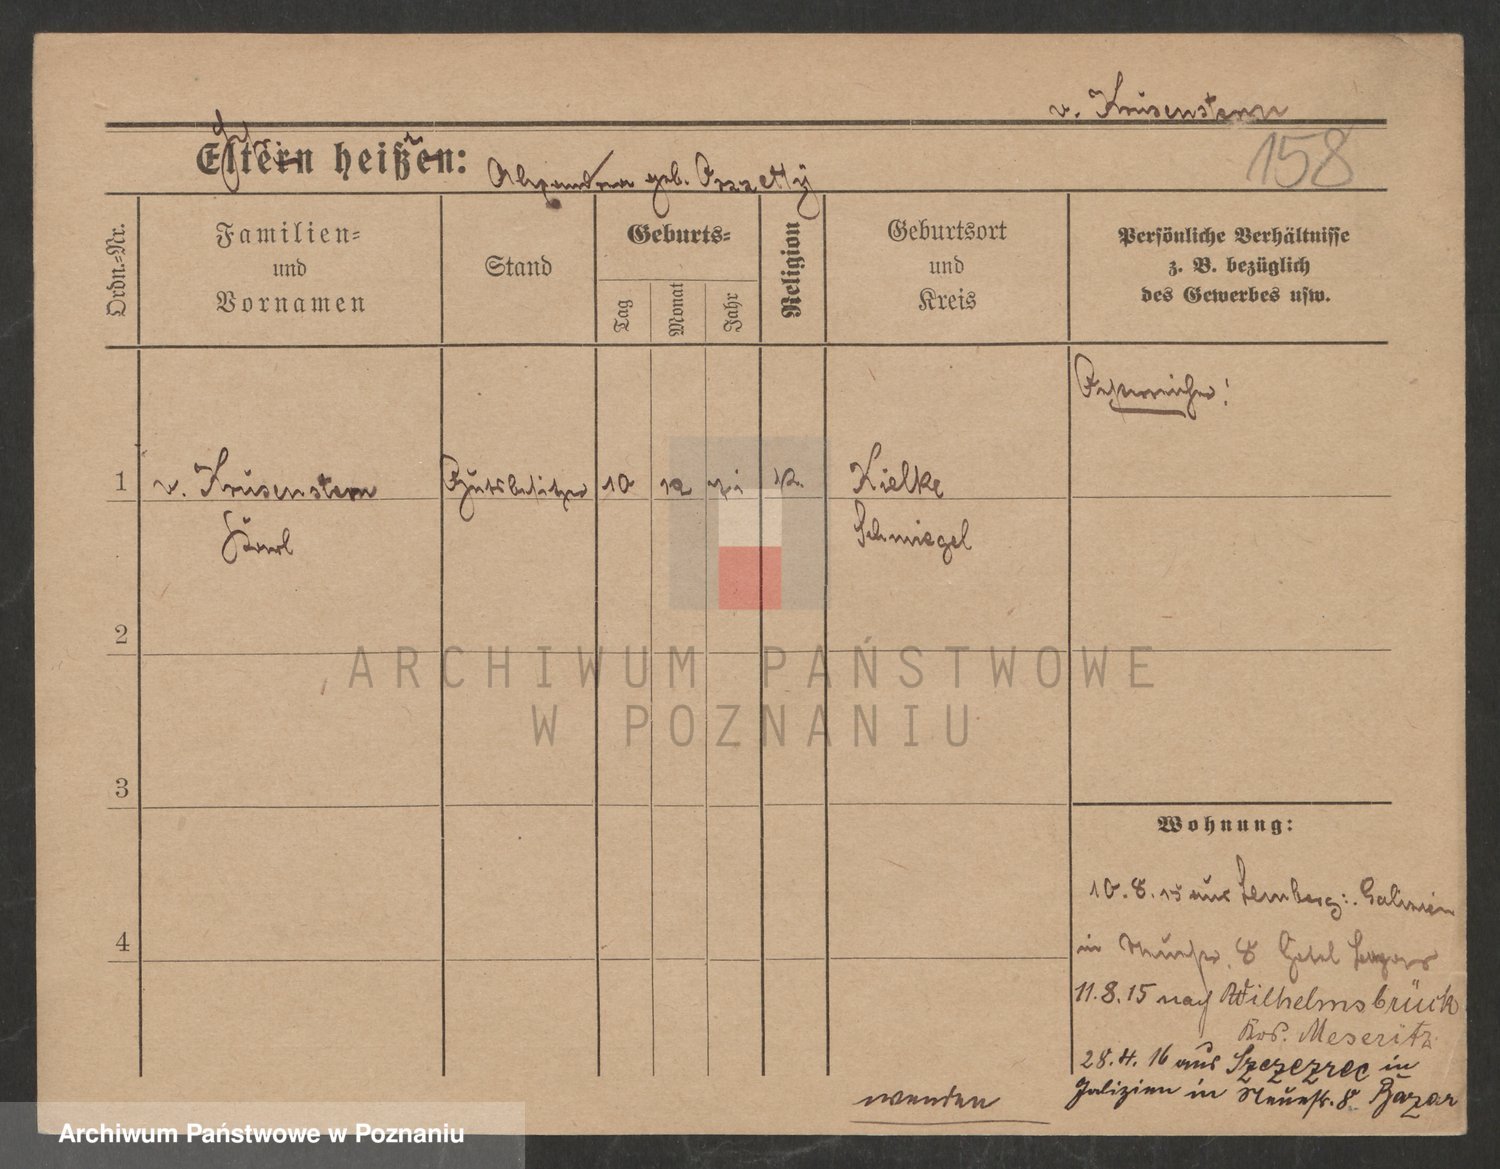 v. Krusenstern
158
Eltern heißen:
geb.
Ordn.-Nr.
Familien-
und
Vornamen
Stand
Geburts-
Tag
Monat
Jahr
Religion
Geburtsort
und
Kreis
Persönliche Verhältnisse
z. B. bezüglich
des Gewerbes usw.
Österreicher!
1
v. Krusenstern
Gutsbesitzer
10
12
71
k.
Kielke
Karl
Schmiegel
2
ARCHIWUM PAŃSTWOWE
W POZNANIU
3
Wohnung:
10. 8. 15 aus Lemberg: Galizien
4
in 8 Hotel
11. 8. 15 nach Wilhelmsbrück
Meseritz
28. 4. 16 aus Szczezrec in
Galizien in Neuestr. 8 Bazar
wenden
Archiwum Państwowe w Poznaniu